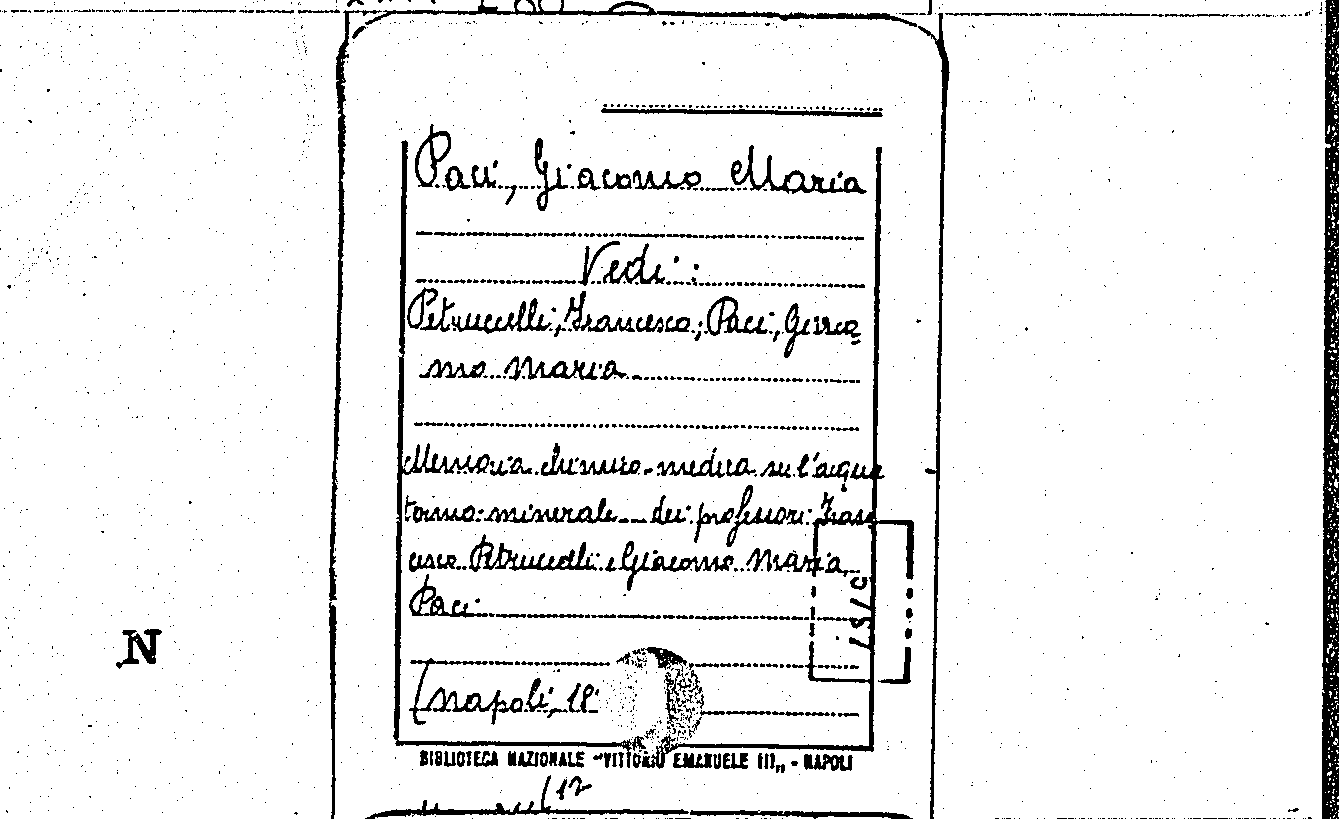 Paci, Giacomo Maria
Vedi:
Petruccelli, Francesco; Paci, Giaco=
mo Maria
Memoria chimico-medica su l'acqua
termo-minerale dei professori Fran
cesco Petruccelli e Giacomo Maria
Paci
(Napoli, 18
BIBLIOTECA NAZIONALE "VITTORIO EMANUELE III„ - NAPOLI
N